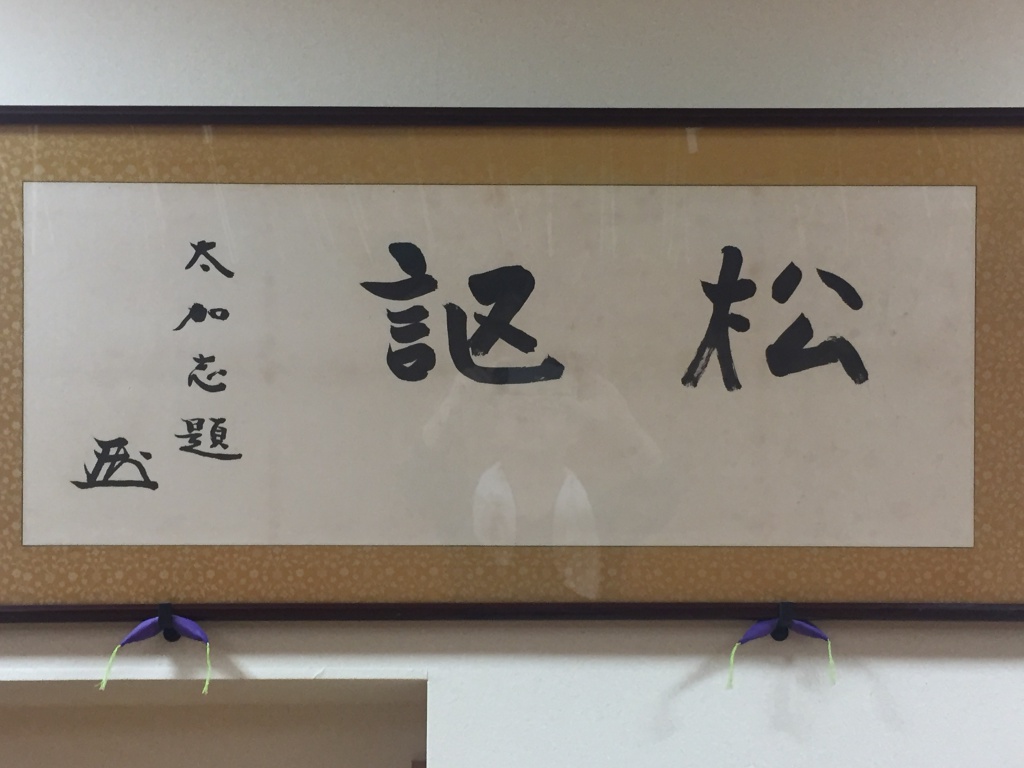 松謳
太加志題